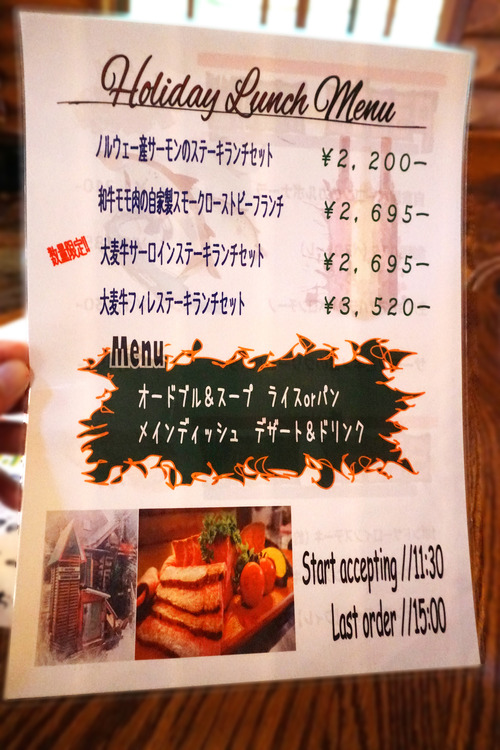 Holiday Lunch Menu
ノルウェー産サーモンのステーキランチセット ¥2,200−
和牛モモ肉の自家製スモークローストビーフランチ ¥2,695−
数量限定!! 大麦牛サーロインステーキランチセット ¥2,695−
大麦牛フィレステーキランチセット ¥3,520−
Menu
オードブル&スープ ライスorパン
メインディッシュ デザート&ドリンク
Start accepting //11:30
Last order //15:00